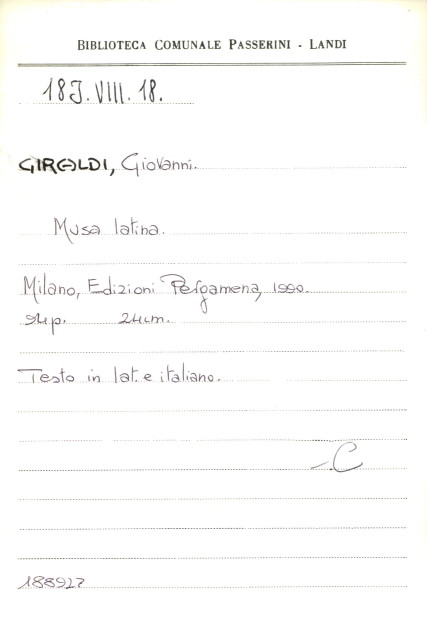 BIBLIOTECA COMUNALE PASSERINI - LANDI
18J.VIII.18.
GIRALDI, Giovanni.
Musa latina.
Milano, Edizioni Pergamena, 1990.
94p. 24cm.
Testo in lat. e italiano.
C
188927